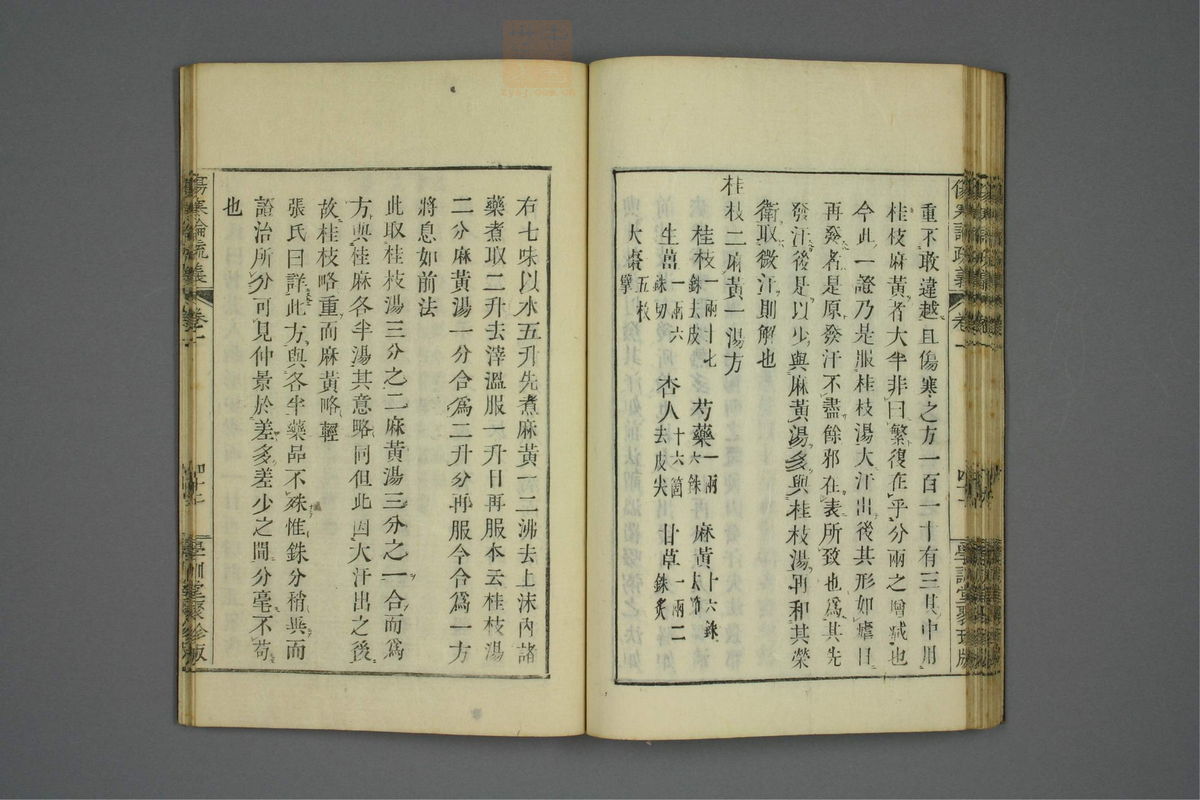 重不敢違越且傷寒之方一百一十有三其中用
桂枝麻黃者大半非曰繁復在乎分兩之增減也
今此一證乃是服桂枝湯大汗出後其形如瘧日
再發者是原發汗不盡餘邪在表所致也爲其先
發汗後是以少與麻黃湯多與桂枝湯再和其榮
衛取微汗則解也
桂枝二麻黃一湯方
桂枝一兩十七銖去皮 芍藥一兩六銖 麻黃十六銖去節
生薑一兩六銖切 杏人十六箇去皮尖 甘草一兩二銖炙
大棗五枚擘
右七味以水五升先煮麻黃一二沸去上沫內諸
藥煮取二升去滓溫服一升日再服本云桂枝湯
二分麻黃湯一分合爲二升分再服今合爲一方
將息如前法
此取桂枝湯三分之二麻黃湯三分之一合而爲
方與桂麻各半湯其意略同但此因大汗出之後
故桂枝略重而麻黃略輕
張氏曰詳此方與各半藥品不殊惟銖分稍異而
證治所分可見仲景於差多差少之間分毫不苟
也
傷寒論疏義
卷一
學訓堂聚珍版